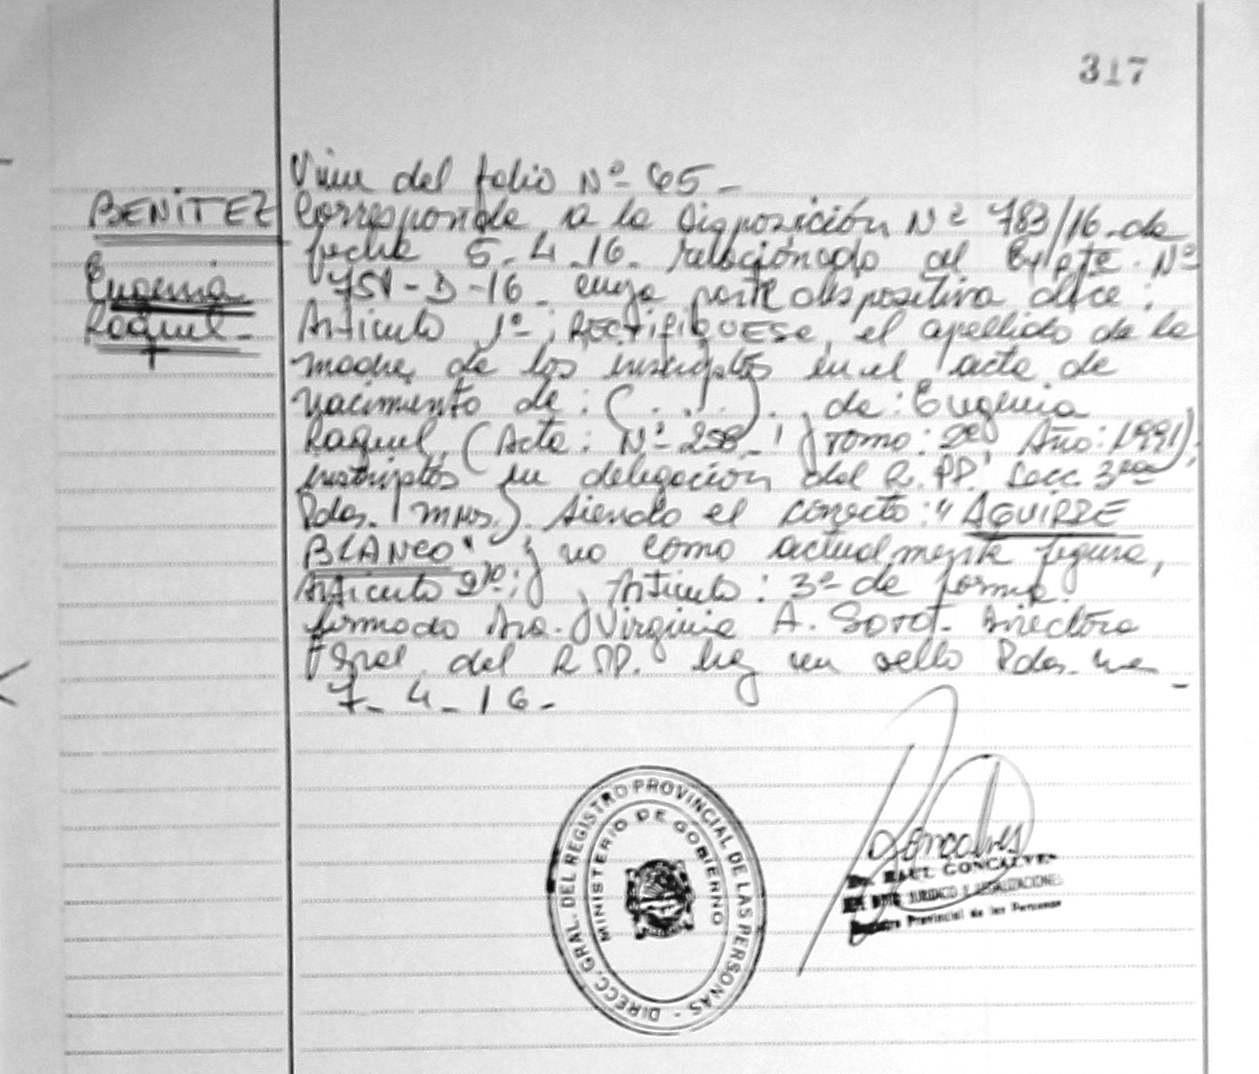 317
Viene del folio Nº 65 -
BENITEZ
Eugenia
Raquel -
Corresponde a la Disposición Nº 783/16 de
fecha 5.4.16. relacionado al Expte. Nº
751-D-16 cuya parte dispositiva dice:
Artículo 1º: RECTIFIQUESE, el apellido de la
madre de los inscriptos en el acta de
nacimiento de: (...). de: Eugenia
Raquel (Acta: Nº 258 Tomo: 2º Año: 1991)
inscriptos en delegación del R.PP. Secc. 3ra
Pdas. Mnes.). siendo el correcto: "AGUIRRE
BLANCO" y no como actualmente figura,
Artículo 2º: Artículo: 3º de forma.
firmado Dra. Virginia A. Directora
Gral. del R.PP. hay un sello Pdas. Mnes
7-4-16.-
DIRECC. GRAL. DEL REGISTRO PROVINCIAL DE LAS PERSONAS -
MINISTERIO DE GOBIERNO
Goncalves
Dr. RAUL GONCALVES
JEFE DPTO. JURIDICO Y LEGALIZACIONES
Registro Provincial de las Personas